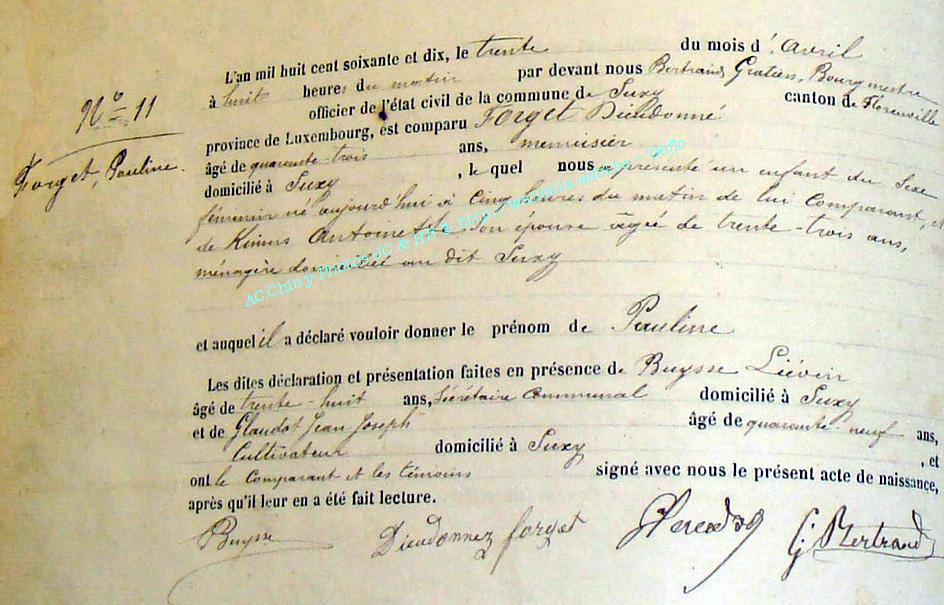 L'an mil huit cent soixante et dix, le trente du mois d' Avril
à huit heures du matin par devant nous Bertrand Gratien, Bourgmestre
officier de l'état civil de la commune de Suxy canton de Florenville
province de Luxembourg, est comparu Forget Dieudonné
âgé de quarante-trois ans, menuisier
domicilié à Suxy , lequel nous a présenté un enfant du Sexe
féminin né aujourd'hui à cinq heures du matin de lui Comparant, et
de Antoinette son épouse âgée de trente-trois ans,
ménagère domiciliée au dit Suxy
N° 11
Forget, Pauline.
et auquel il a déclaré vouloir donner le prénom de Pauline
Les dites déclaration et présentation faites en présence de Buysse Liévin
âgé de trente-huit ans, Sécrétaire Communal domicilié à Suxy
et de Glaudot Jean Joseph âgé de quarante-neuf ans,
Cultivateur domicilié à Suxy , et
ont le Comparant et les témoins signé avec nous le présent acte de naissance,
après qu'il leur en a été fait lecture.
Buysse Dieudonnez forget G Bertrand
AC Chiny Photos JC &